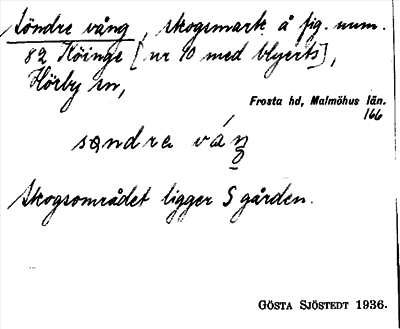 Söndre vång, skogsmark å fig. num.
82 Köinge [nr 10 med blyerts],
Hörby sn,
Frosta hd, Malmöhus län.
166
søndra váŋ
Skogsområdet ligger S gården.
GÖSTA SJÖSTEDT 1936.